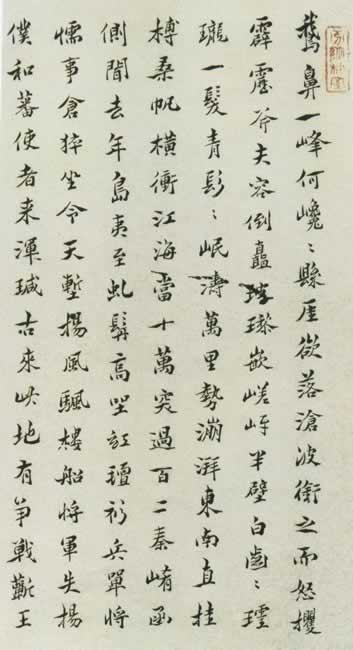 鵞鼻一峰何巉〻縣厓欲落滄波銜之而怒攫
霹靂斧夫容倒矗嵌嵯岈半壁白
瓏一髮青〻岷濤萬里勢漰湃東南直挂
榑桑帆橫衝江海當十萬突過百二秦崤函
側聞去年島夷至虬髯高坐紅衫兵單將
懦事倉猝坐令天塹揚風颿樓船將軍失揚
僕和蕃使者来渾瑊古來此地有爭戰蘄王